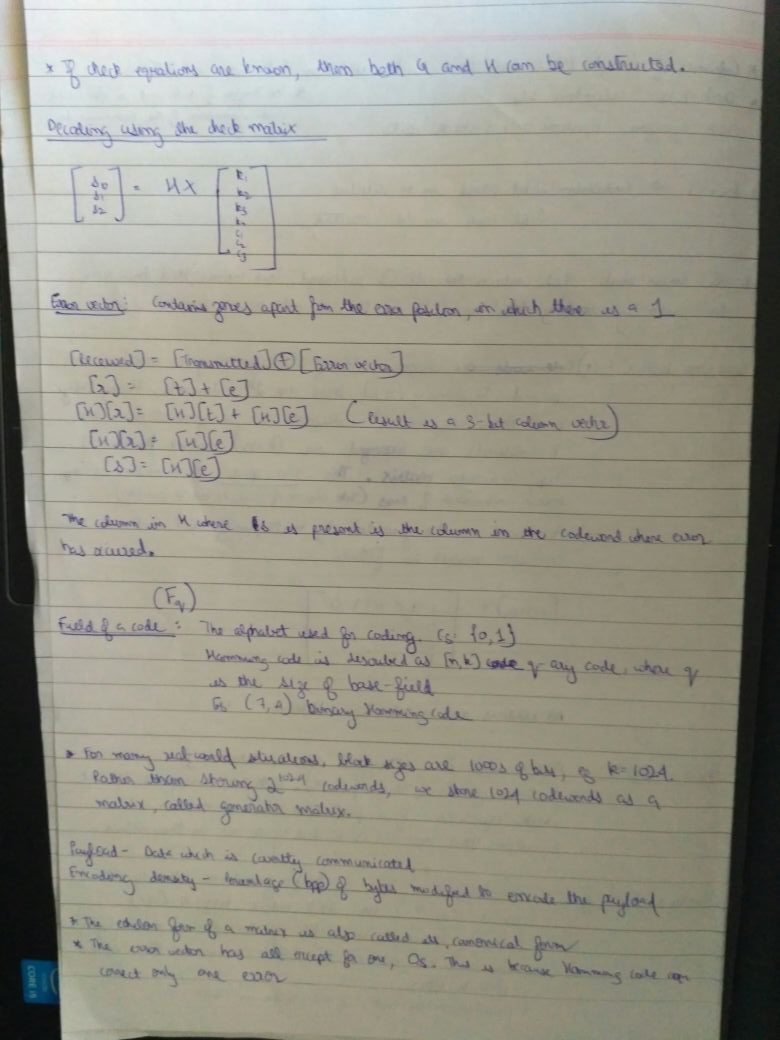 * If check equations are known, then both G and H can be constructed.
Decoding using the check matrix
[s0 s1 s2] = H X [k1 k2 k3 k4 c1 c2 c3]
Error vector: Contains zeroes apart from the error position, in which there is a 1
[Received] = [Transmitted] ⊕ [Error vector]
[r] = [t] + [e]
[H][r] = [H][t] + [H][e] (result is a 3-bit column vector)
[H][r] = [H][e]
[s] = [H][e]
The column in H where s is present is the column in the codeword where error
has occured.
(Fq)
Field of a code: The alphabet used for coding. Eg: {0,1}
Hamming code is described as [n,k] q-ary code, where q
is the size of base-field
Eg (7,4) binary Hamming code
* For many real world situations, block sizes are 1000s of bits, eg k=1024.
Rather than storing 2^1024 codewords, we store 1024 codewords as a
matrix, called generator matrix.
Payload - Data which is covertly communicated
Encoding density - Percentage (bpp) of bytes modified to encode the payload
* The echelon form of a matrix is also called its canonical form
* The error vector has all except for one, 0s. This is because Hamming code can
correct only one error
CORE i5